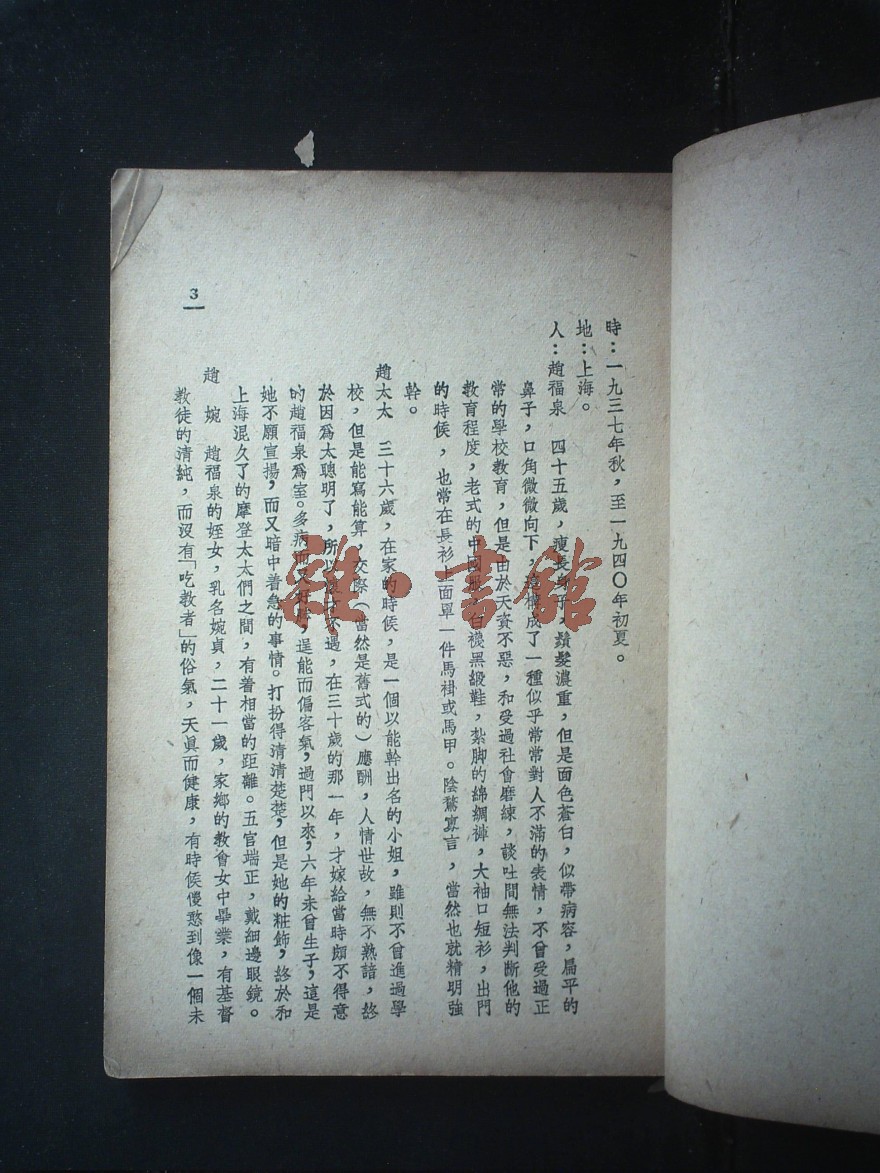 時：一九三七年秋，至一九四〇年初夏。
地：上海。
人：趙福泉　四十五歲，瘦長身子，鬚髮濃重，但是面色蒼白，似帶病容，扁平的
鼻子，口角微微向下，這構成了一種似乎常常對人不滿的表情，不曾受過正
常的學校教育，但是由於天資不惡，和受過社會磨練，談吐間無法判斷他的
教育程度，老式的中國服，白襪黑緞鞋，紮脚的綿綢褲，大袖口短衫，出門
的時候，也常在長衫上面罩一件馬褂或馬甲。陰鷙寡言，當然也就精明強
幹。
趙太太　三十六歲，在家的時候，是一個以能幹出名的小姐，雖則不曾進過學
校，但是能寫能算，交際（當然是舊式的）應酬，人情世故，無不熟諳，終
於因爲太聰明了，所以不遇，在三十歲的那一年，才嫁給當時頗不得意
的趙福泉爲室。多病而又好，逞能而偏客氣，過門以來，六年未曾生子，這是
她不願宣揚，而又暗中着急的事情。打扮得清清楚楚，但是她的粧飾，終於和
上海混久了的摩登太太們之間，有着相當的距離。五官端正，戴細邊眼鏡。
趙　婉　趙福泉的姪女，乳名婉貞，二十一歲，家鄉的教會女中畢業，有基督
教徒的清純，而沒有「吃教者」的俗氣，天眞而健康，有時候憂愁到像一個未
3
雜·書館